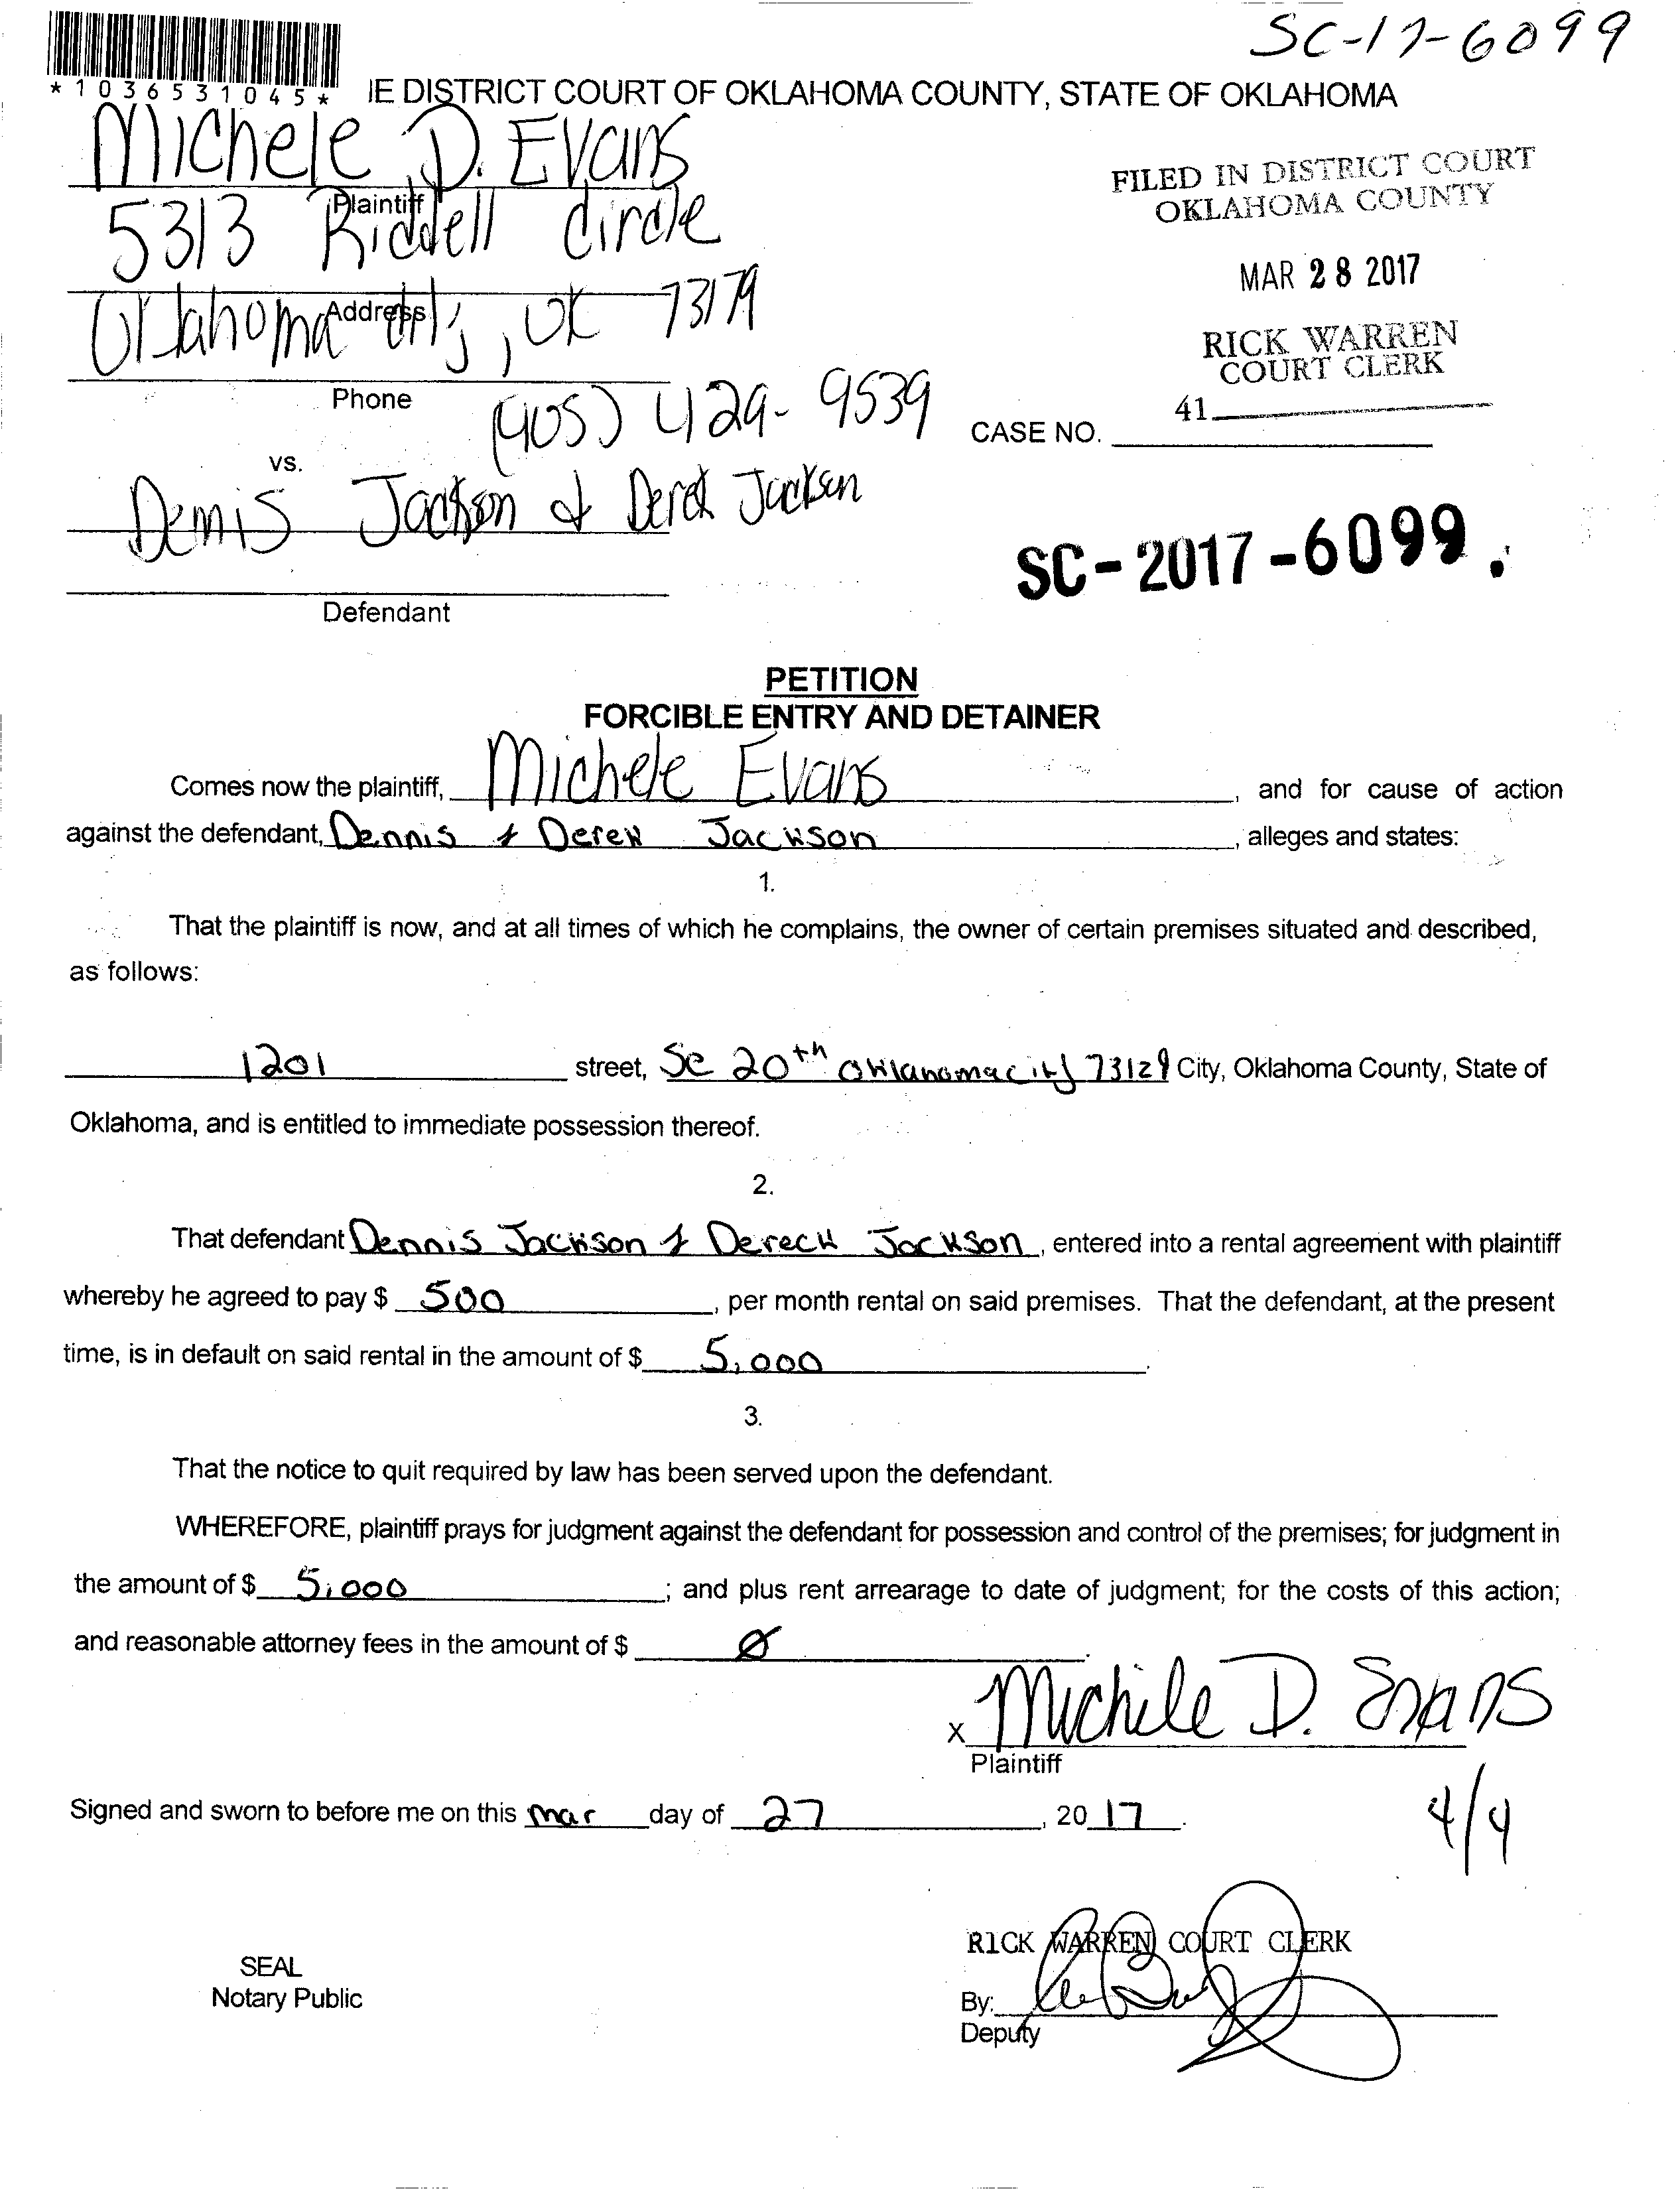 SC-17-6099
*1036531045*
IE DISTRICT COURT OF OKLAHOMA COUNTY, STATE OF OKLAHOMA
Michele D. Evans
Plaintiff
5313 Riddell Circle
Address
Oklahoma City, OK 73179
Phone
(405) 429-9539
FILED IN DISTRICT COURT
OKLAHOMA COUNTY
MAR 28 2017
RICK WARREN
COURT CLERK
41
CASE NO.
vs.
Dennis Jackson & Derek Jackson
SC-2017-6099.
Defendant
PETITION
FORCIBLE ENTRY AND DETAINER
Comes now the plaintiff, Michele Evans, and for cause of action
against the defendant, Dennis & Derek Jackson, alleges and states:
1.
That the plaintiff is now, and at all times of which he complains, the owner of certain premises situated and described,
as follows:
1201 street, Se 20th Oklahomacity 73129 City, Oklahoma County, State of
Oklahoma, and is entitled to immediate possession thereof.
2.
That defendant Dennis Jackson & Dereck Jackson, entered into a rental agreement with plaintiff
whereby he agreed to pay $ 500, per month rental on said premises. That the defendant, at the present
time, is in default on said rental in the amount of $ 5,000.
3.
That the notice to quit required by law has been served upon the defendant.
WHEREFORE, plaintiff prays for judgment against the defendant for possession and control of the premises; for judgment in
the amount of $ 5,000; and plus rent arrearage to date of judgment; for the costs of this action;
and reasonable attorney fees in the amount of $ Ø.
x Michele D. Evans
Plaintiff
Signed and sworn to before me on this Mar day of 27, 20 17.
4/4
RICK WARREN COURT CLERK
SEAL
Notary Public
By:
Deputy